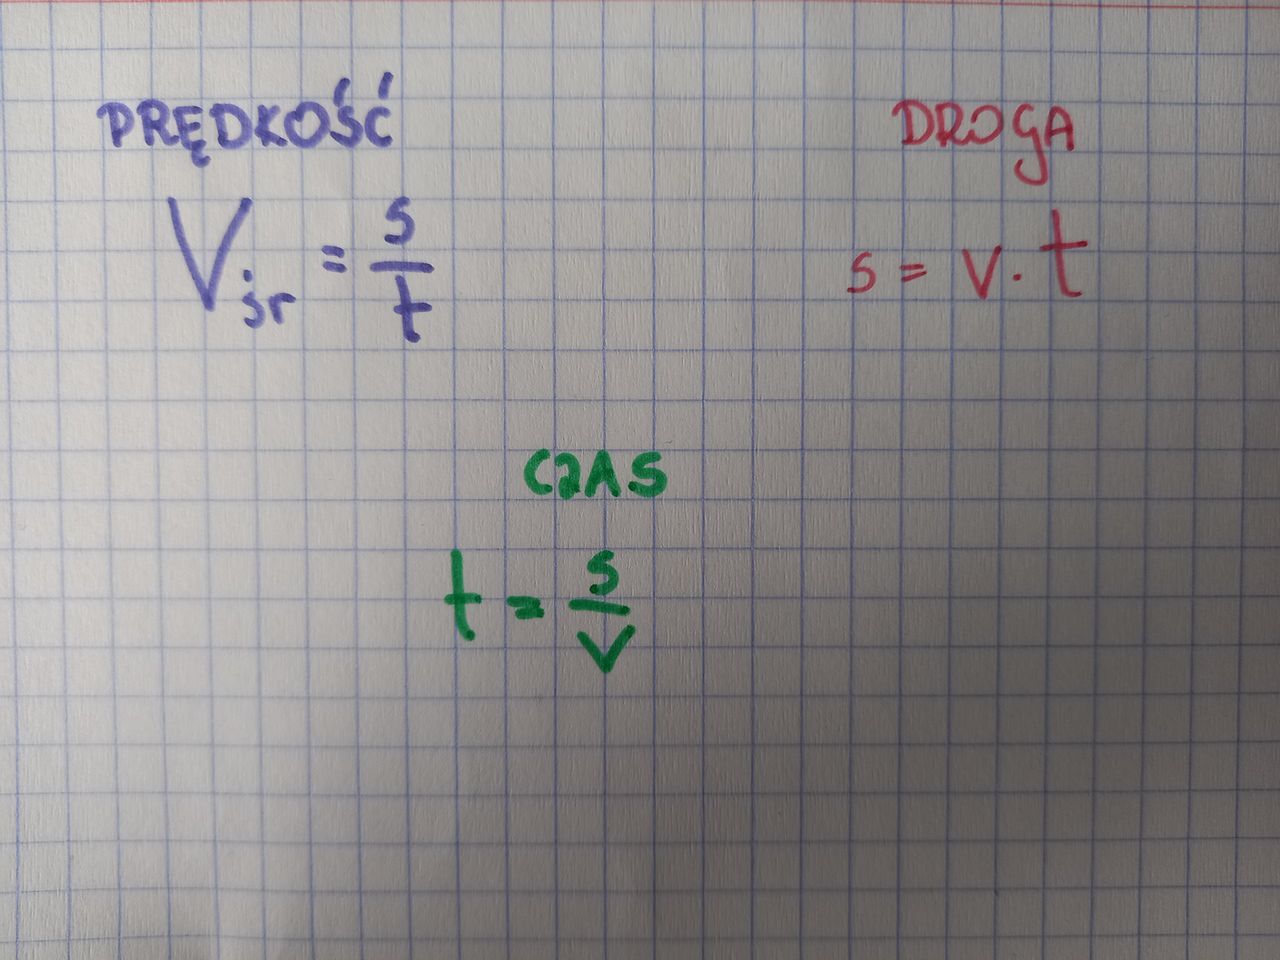 PRĘDKOŚĆ
Vśr = s/t
DROGA
s = v · t
CZAS
t = s/v